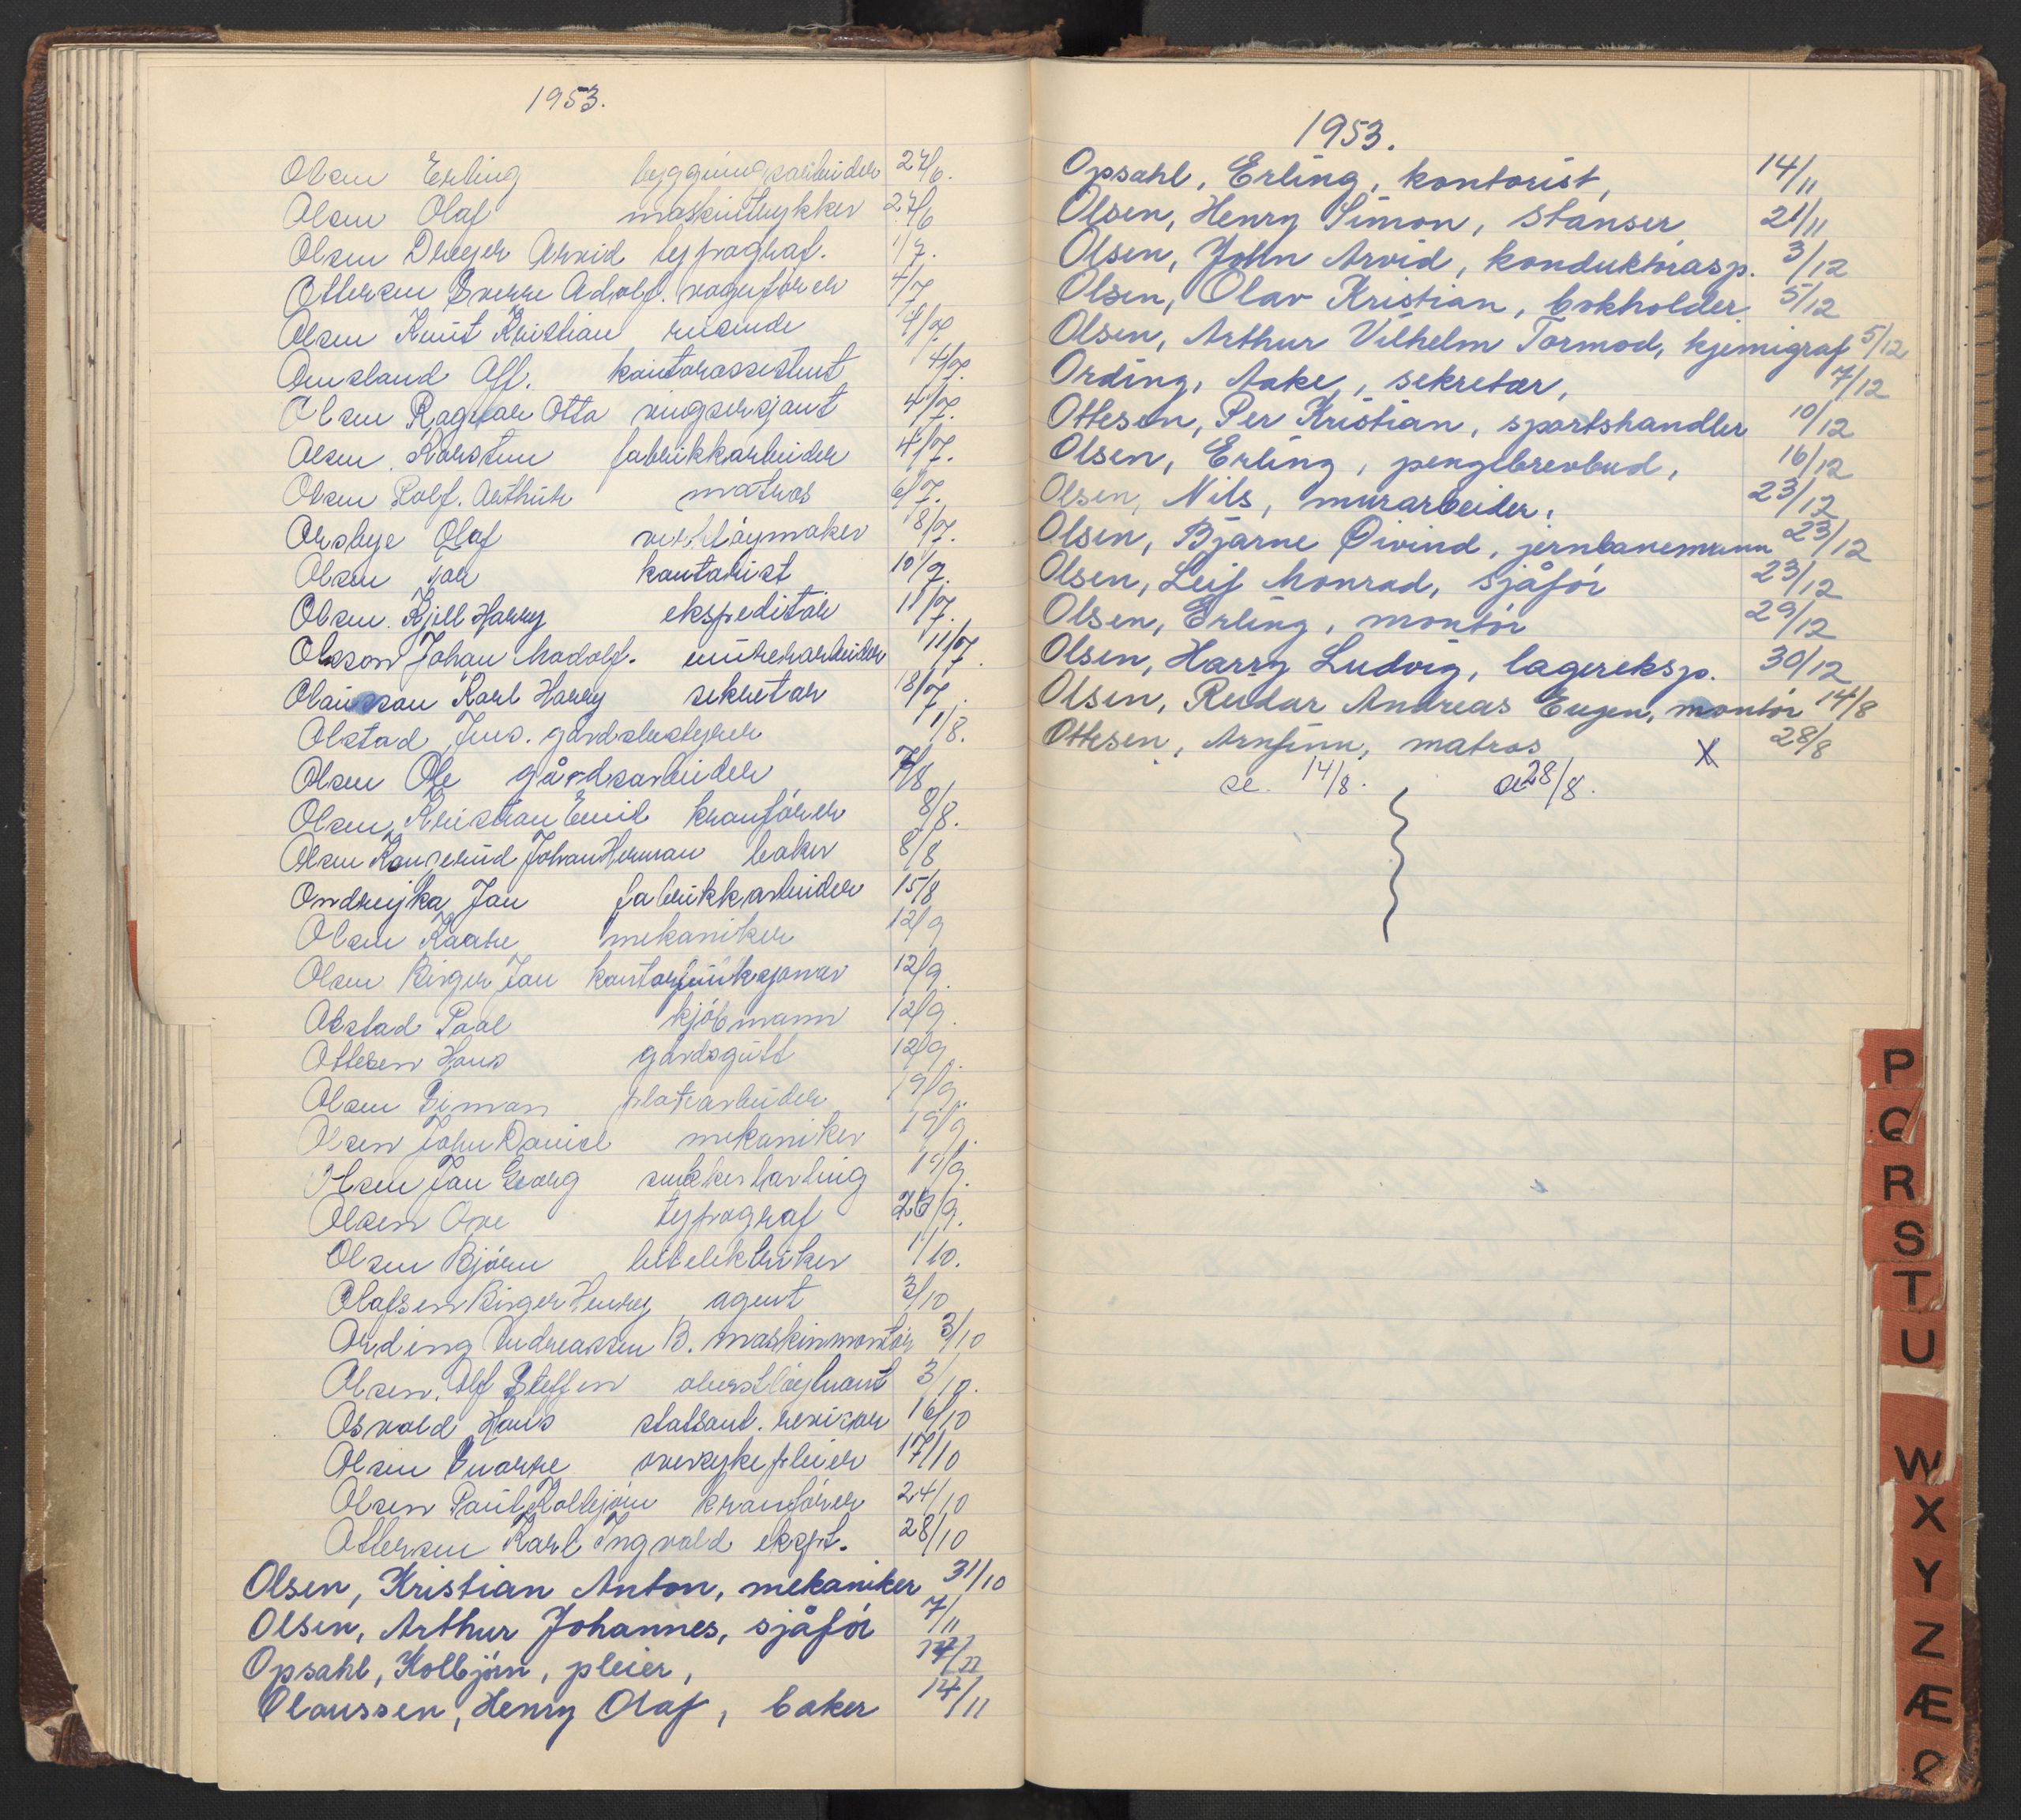 1953.
Olsen Erling bygningsarbeider 27/6.
Olsen Olaf maskintrykker 27/6
Olsen Dreyer Arvid typograf. 1/7.
Ottersen Sverre Adolf. vognfører 4/7
Olsen Knut Kristian reisende 4/7.
Omsland Alf. kontorassistent 4/7.
Olsen Ragnar Otto vingsersjant 4/7.
Olsen Karsten fabrikkarbeider 4/7.
Olsen Rolf. Arthur matros 6/7.
Olsbye Olaf verktøymaker 8/7.
Olsen Tor kontorist 10/7.
Olsen Kjell Harry ekspeditör 11/7.
Olsson Johan Madolf. murerarbeider 11/7.
Olausson Karl Harry sekretær 18/7.
Olstad Jens. gårdsbestyrer 1/8.
Olsen Ole gårdsarbeider 7/8
Olsen Kristian Emil kranfører 8/8.
Olsen Kongerud Johan Herman baker 8/8
Ondrejka Jan fabrikkarbeider 15/8
Olsen Kaare mekaniker 12/9
Olsen Birger Jan kontorfunksjonær 12/9.
Olstad Paal kjöbmann 12/9.
Ottesen Hans gårdsgutt 12/9.
Olsen Simon platearbeider 19/9.
Olsen John Daniel mekaniker 19/9.
Olsen Jan Georg snekkerlærling 19/9.
Olsen Ove typograf 26/9.
Olsen Bjørn bilelektriker 1/10.
Olafsen Birger Henry agent 3/10
Ording Andreassen B. maskinmontör 3/10
Olsen. Alf Steffen oberstløytnant 3/10.
Osvold Hans statsaut. revisor 16/10
Olsen Sverre oversykepleier 17/10
Olsen Paul Kolbjörn kranfører 24/10
Ottersen Karl Ingvald ekspt. 28/10
Olsen, Kristian Anton, mekaniker 31/10
Olsen, Arthur Johannes, sjåför 7/11
Opsahl, Kolbjörn, pleier, 14/11
Olaussen, Henry Olaf, baker 14/11
1953.
Opsahl, Erling, kontorist, 14/11
Olsen, Henry Simon, stanser 21/11
Olsen, John Arvid, konduktörasp. 3/12
Olsen, Olav Kristian, bokholder. 5/12
Olsen, Arthur Vilhelm Tormod, kjemigraf 5/12
Ording, Aake, sekretær, 7/12
Ottesen, Per Kristian, sportshandler 10/12
Olsen, Erling, pengebrevbud, 16/12
Olsen, Nils, murarbeider, 23/12
Olsen, Bjarne Øivind, jernbanemann 23/12
Olsen, Leif Monrad, sjåför 23/12
Olsen, Erling, montör 29/12
Olsen, Harry Ludvig, lagereksp. 30/12
Olsen, Reidar Andreas Eugen, montör 14/8
Ottesen, Arnfinn, matros X 28/8
se. 14/8. se 28/8.
P
Q
R
S
T
U
W
X
Y
Z
Æ
Ø